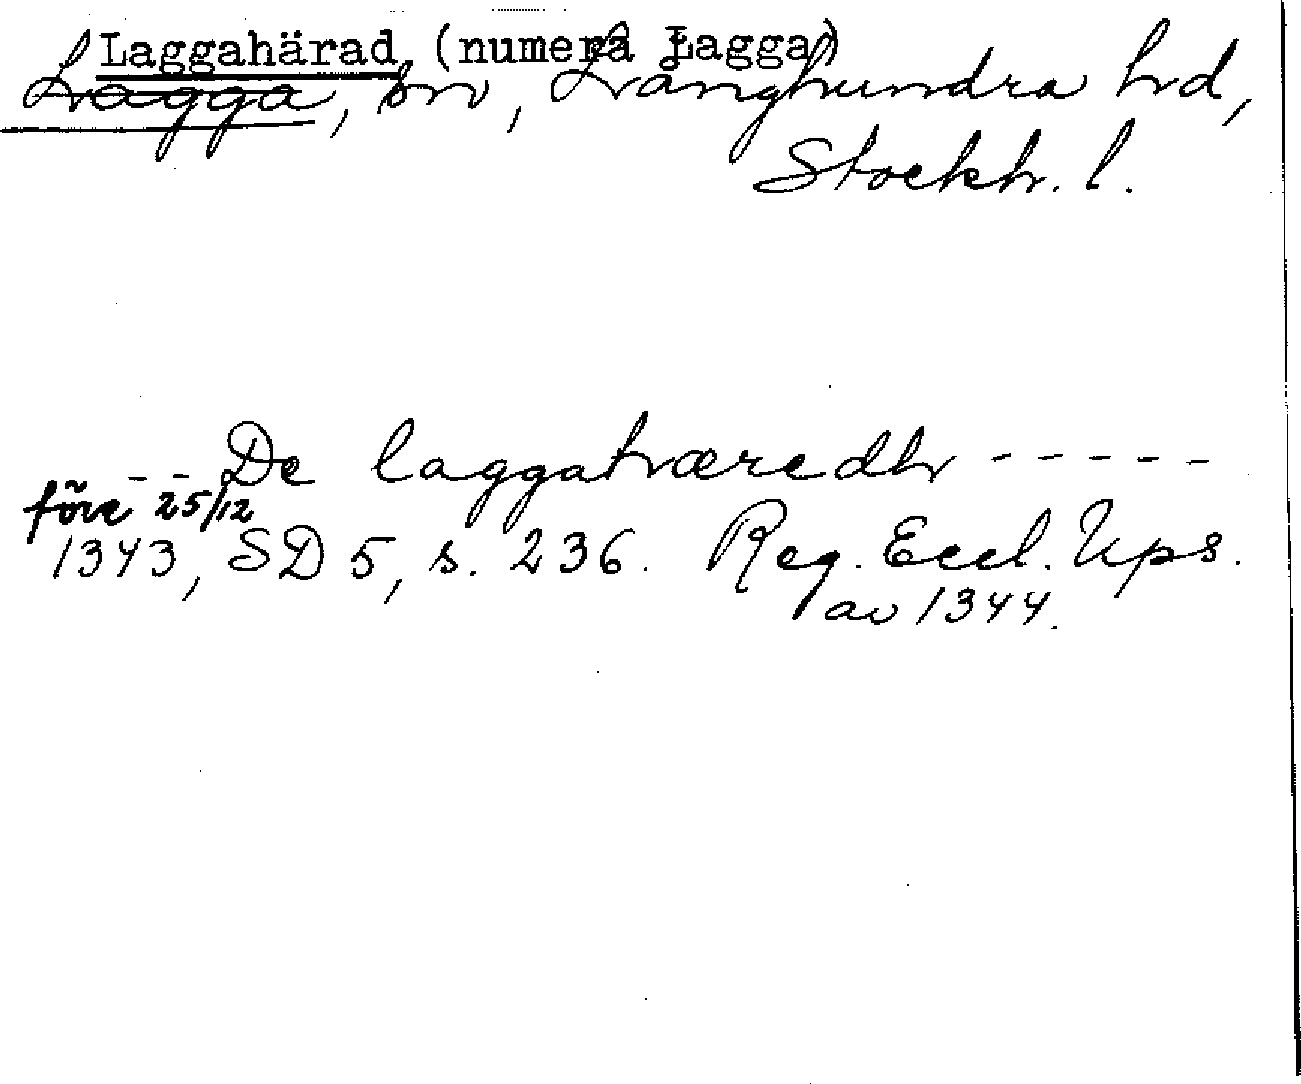 Laggahärad (numera Lagga)
Lagga, sn, Långhundra hd,
Stockh. l.
- - De laggahæredh - - - - -
före 25/12
1343, SD 5, s. 236. Reg. Eccl. Ups.
av 1344.